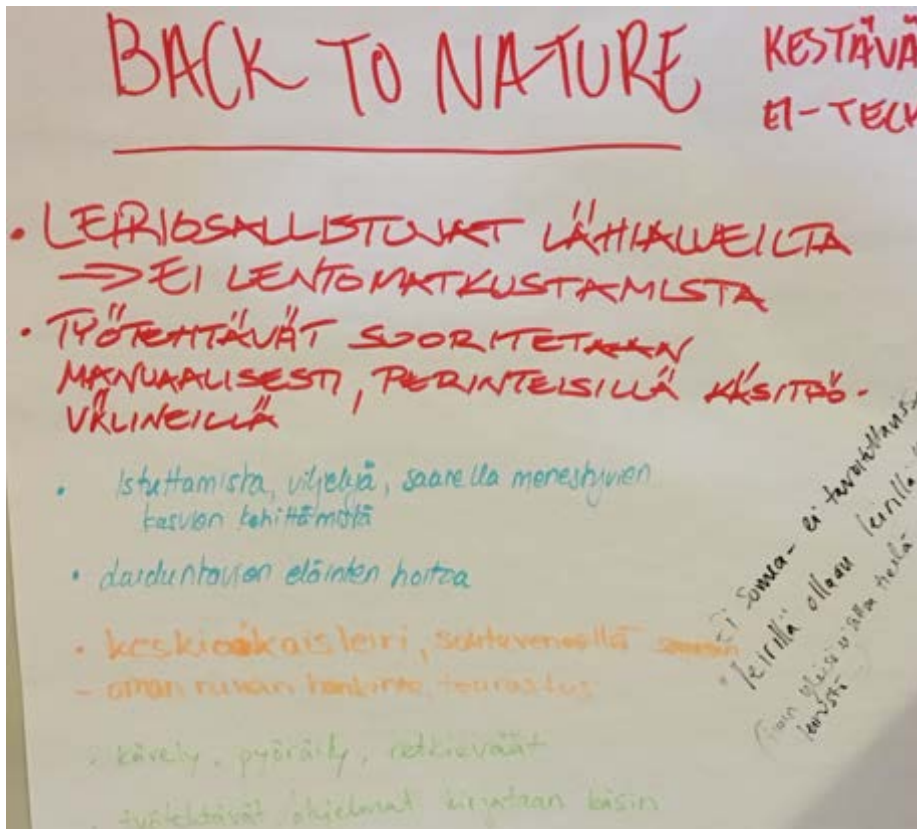 BACK TO NATURE
KESTÄVÄ
EI-TECK
• LEIRIOSALLISTUJAT LÄHIALUEILTA
⇒ EI LENTOMATKUSTAMISTA
• TYÖTEHTÄVÄT SUORITETAAN
MANUAALISESTI, PERINTEISILLÄ KÄSITYÖ-
VÄLINEILLÄ
• Istuttamista, viljelyä, saarella menestyvien
kasvien kehittämistä
• eläinten hoitoa
• keskiaikaisleiri, soutuveneellä saareen
- oman ruuan hankinta,
• kävely, pyöräily, retkieväät
• työtehtävät, ohjelmat kirjataan käsin
Ei somea - ei
• leirillä ollaan leirillä